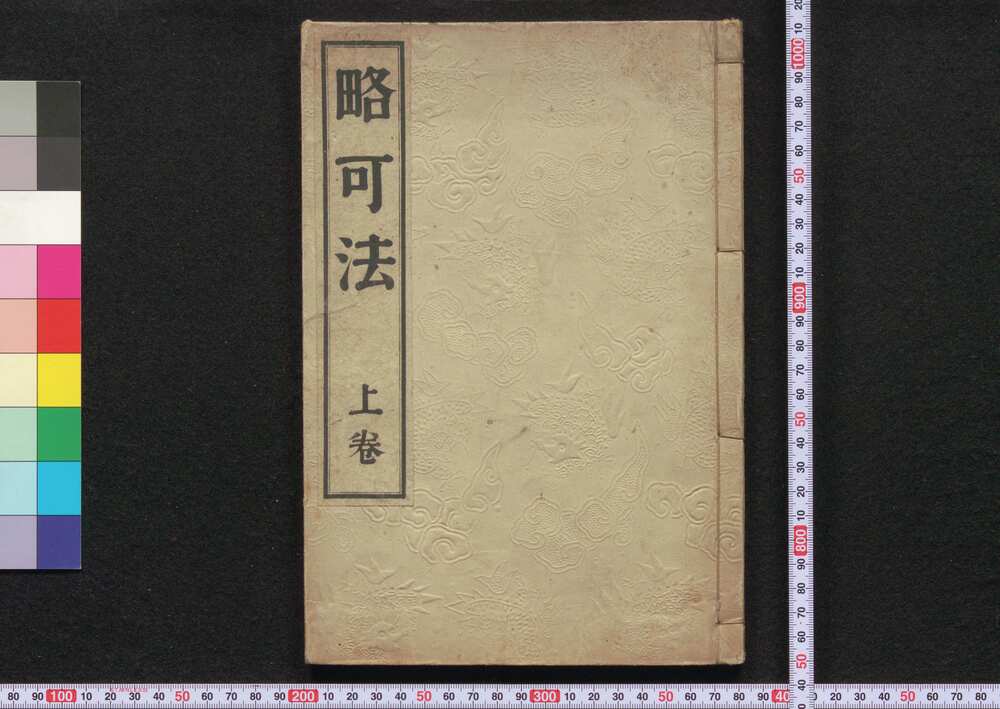 略可法
上卷
20
10
1000
90
80
70
60
50
40
30
20
10
900
90
80
70
60
50
40
30
20
10
800
90
80
70
60
50
40
80 90 100 10 20 30 40 50 60 70 80 90 200 10 20 30 40 50 60 70 80 90 300 10 20 30 40 50 60 70 80 90 40 20 30 40 50 60 70 80